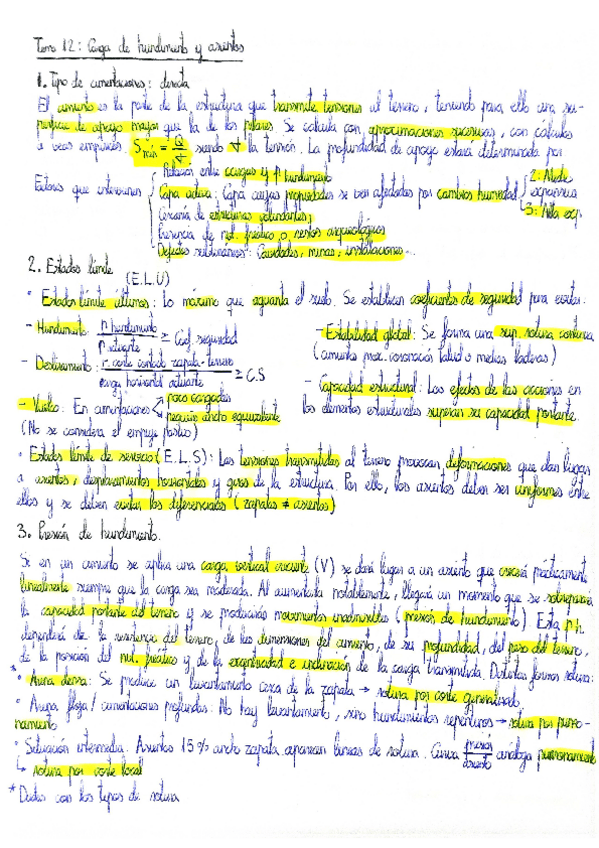 Tema 12: Carga de hundimiento y asientos
1. Tipo de cimentaciones: directa
El cimiento es la parte de la estructura que transmite tensiones al terreno, teniendo para ello una su-
perficie de apoyo mayor que la de los pilares. Se calcula con aproximaciones sucesivas, con cálculos
a veces empíricos. siendo la tensión. La profundidad de apoyo estará determinada por
Relación entre cargas y p hundimiento
Factores que intervienen Capa activa: Capa cuyas propiedades se ven afectadas por cambios humedad 2: Medio expansiva
3: Alta exp.
Cercanía de estructuras colindantes
Presencia de niv. freático o restos arqueológicos
Defectos subterráneos: Cavidades, minas, instalaciones...
2. Estados límite (E.L.U)
• Estados límite últimos: Lo máximo que aguanta el suelo. Se establecen coeficientes de seguridad para evitar:
- Hundimiento: p hundimiento / p actuante ≥ Coef. seguridad
- Estabilidad global: Se forma una sup. rotura continua
(cimientos prox. coronación talud o medias laderas)
- Deslizamiento: r. corte contacto zapata-terreno / carga horizontal actuante ≥ C.S
- Capacidad estructural: Los efectos de las acciones en
los elementos estructurales superan su capacidad portante.
- Vuelco: En cimentaciones poco cargadas
requiere ancho equivalente
(No se considera el empuje pasivo)
• Estados límite de servicio (E.L.S): Las tensiones transmitidas al terreno provocan deformaciones que dan lugar
a asientos, desplazamientos horizontales y giros de la estructura. Por ello, los asientos deben ser uniformes entre
ellos y se deben evitar los diferenciales (zapatas ≠ asientos)
3. Presión de hundimiento.
Si en un cimiento se aplica una carga vertical creciente (V) se dará lugar a un asiento que crecerá prácticamente
linealmente siempre que la carga sea moderada. Al aumentarla notablemente, llegará un momento que se sobrepasará
la capacidad portante del terreno y se producirán movimientos inadmisibles (presión de hundimiento). Esta p.h.
dependerá de la resistencia del terreno, de las dimensiones del cimiento, de su profundidad, del peso del terreno,
de la posición del niv. freático y de la excentricidad e inclinación de la carga transmitida. Distintas formas rotura:
* • Arena densa: Se produce un levantamiento cerca de la zapata → rotura por corte generalizado
• Arena floja / cimentaciones profundas: No hay levantamiento, sino hundimientos repentinos → rotura por punzo-
namiento
• Situación intermedia: Asientos 15% ancho zapata aparecen líneas de rotura. Curva presión / asiento análoga punzonamiento
↳ rotura por corte local
* Dudas con los tipos de rotura